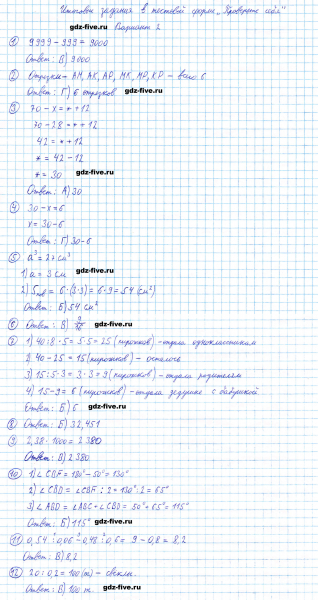 Итоговые задания в тестовой форме „Проверьте себя"
gdz-five.ru Вариант 2
① 9999 - 999 = 9000
Ответ: В) 9000 gdz-five.ru
② Отрезки - АМ, АК, АD, МК, МD, КD - всего 6
Ответ: Г) 6 отрезков gdz-five.ru
③ 70 - х = * + 12
70 - 28 = * + 12
42 = * + 12
* = 42 - 12
* = 30 gdz-five.ru
Ответ: А) 30
④ 30 - х = 6 gdz-five.ru
х = 30 - 6
Ответ: Г) 30-6
⑤ a³ = 27 см³
1) a = 3 см gdz-five.ru
2) Sпов = 6 · (3·3) = 6 · 9 = 54 (см²)
Ответ: Б) 54 см²
⑥ Ответ: В) gdz-five.ru
⑦ 1) 40 : 8 · 5 = 5 · 5 = 25 (пирожков) - отдала одноклассникам
2) 40 - 25 = 15 (пирожков) - осталось
3) 15 : 5 · 3 = 3 · 3 = 9 (пирожков) - отдала родителям
4) 15 - 9 = 6 (пирожков) - отдала дедушке с бабушкой
Ответ: Б) 6 gdz-five.ru
⑧ Ответ: Б) 32,451
⑨ 2,38 · 1000 = 2380
Ответ: В) 2380 gdz-five.ru
⑩ 1) ∠CBF = 180° - 50° = 130°
2) ∠CBD = ∠CBF : 2 = 130° : 2 = 65°
3) ∠ABD = ∠ABC + ∠CBD = 50° + 65° = 115°
Ответ: Б) 115° gdz-five.ru
⑪ 0,54 : 0,06 - 0,48 : 0,6 = 9 - 0,8 = 8,2
Ответ: В) 8,2 gdz-five.ru
⑫ 20 : 0,2 = 100 (т) - свеклы.
Ответ: В) 100 т. gdz-five.ru